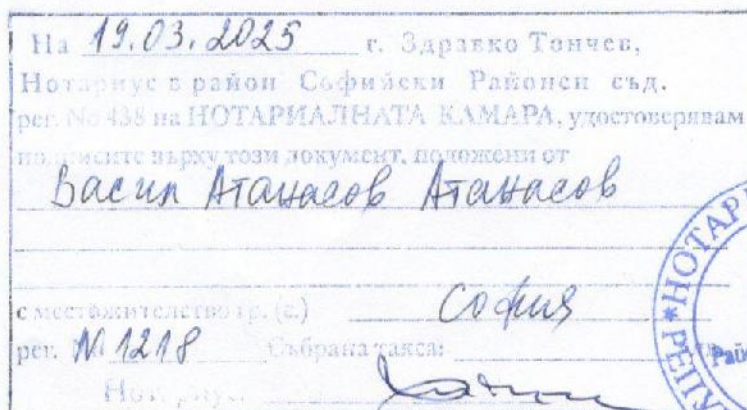 На 19.03.2025 г. Здравко Тончев,
Нотариус в район Софийски Районен съд.
рег. No 438 на НОТАРИАЛНАТА КАМАРА, удостоверявам
подписите върху този документ, положени от
Васил Атанасов Атанасов
с местожителство гр. (с.) София
рег. № 1218 Събрана такса:
Нотариус: